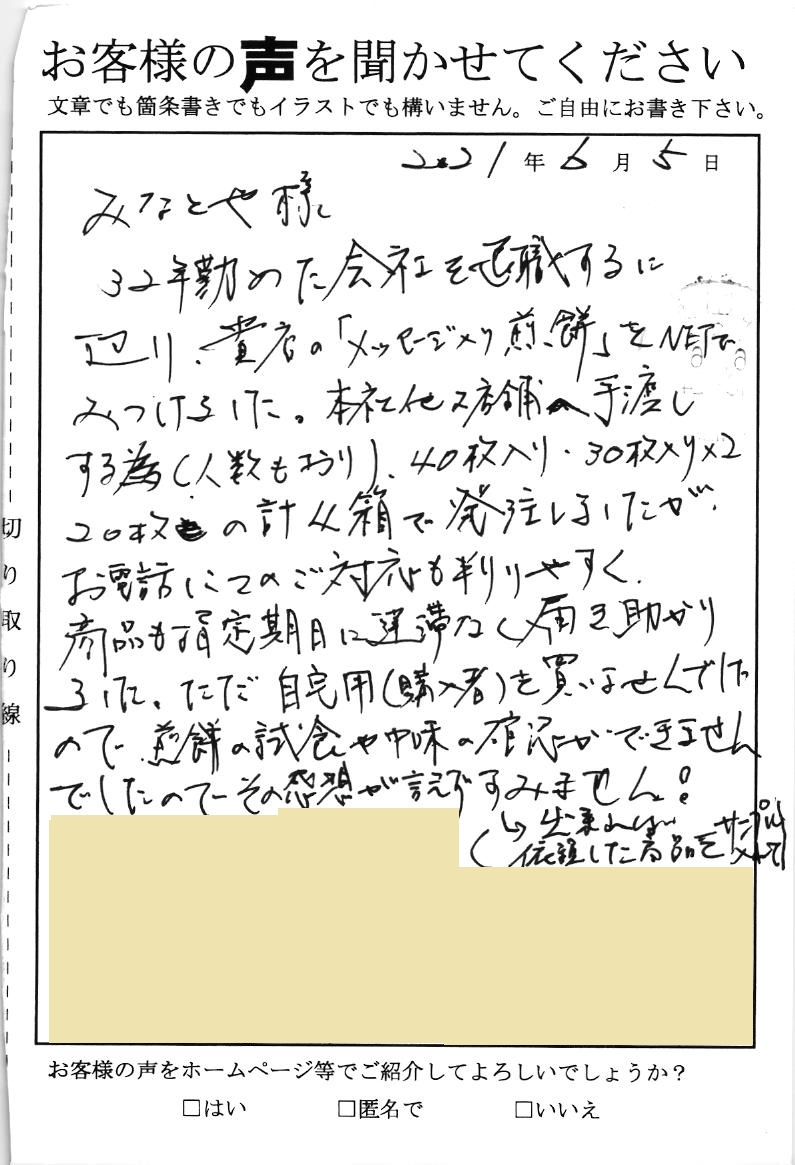 お客様の声を聞かせてください
文章でも箇条書きでもイラストでも構いません。ご自由にお書き下さい。
2021年6月5日
みなとや様
32年勤めた会社を退職するに
辺り、貴店の「メッセージ入り煎餅」をNETで
みつけました。本社他2店舗へ手渡し
する為(人数もおり)、40枚入り・30枚入り×2
20枚の計4箱で発注しましたが、
お電話にてのご対応も判りやすく、
商品も指定期日に遅滞なく届き助かり
ました。ただ自宅用(購入者)を買いませんでした
ので煎餅の試食や中味の確認ができません
でしたのでその感想が言えずすみません!
(↳出来れば
依頼した商品をサンプル
入れて
切り取り線
お客様の声をホームページ等でご紹介してよろしいでしょうか?
□はい □匿名で □いいえ